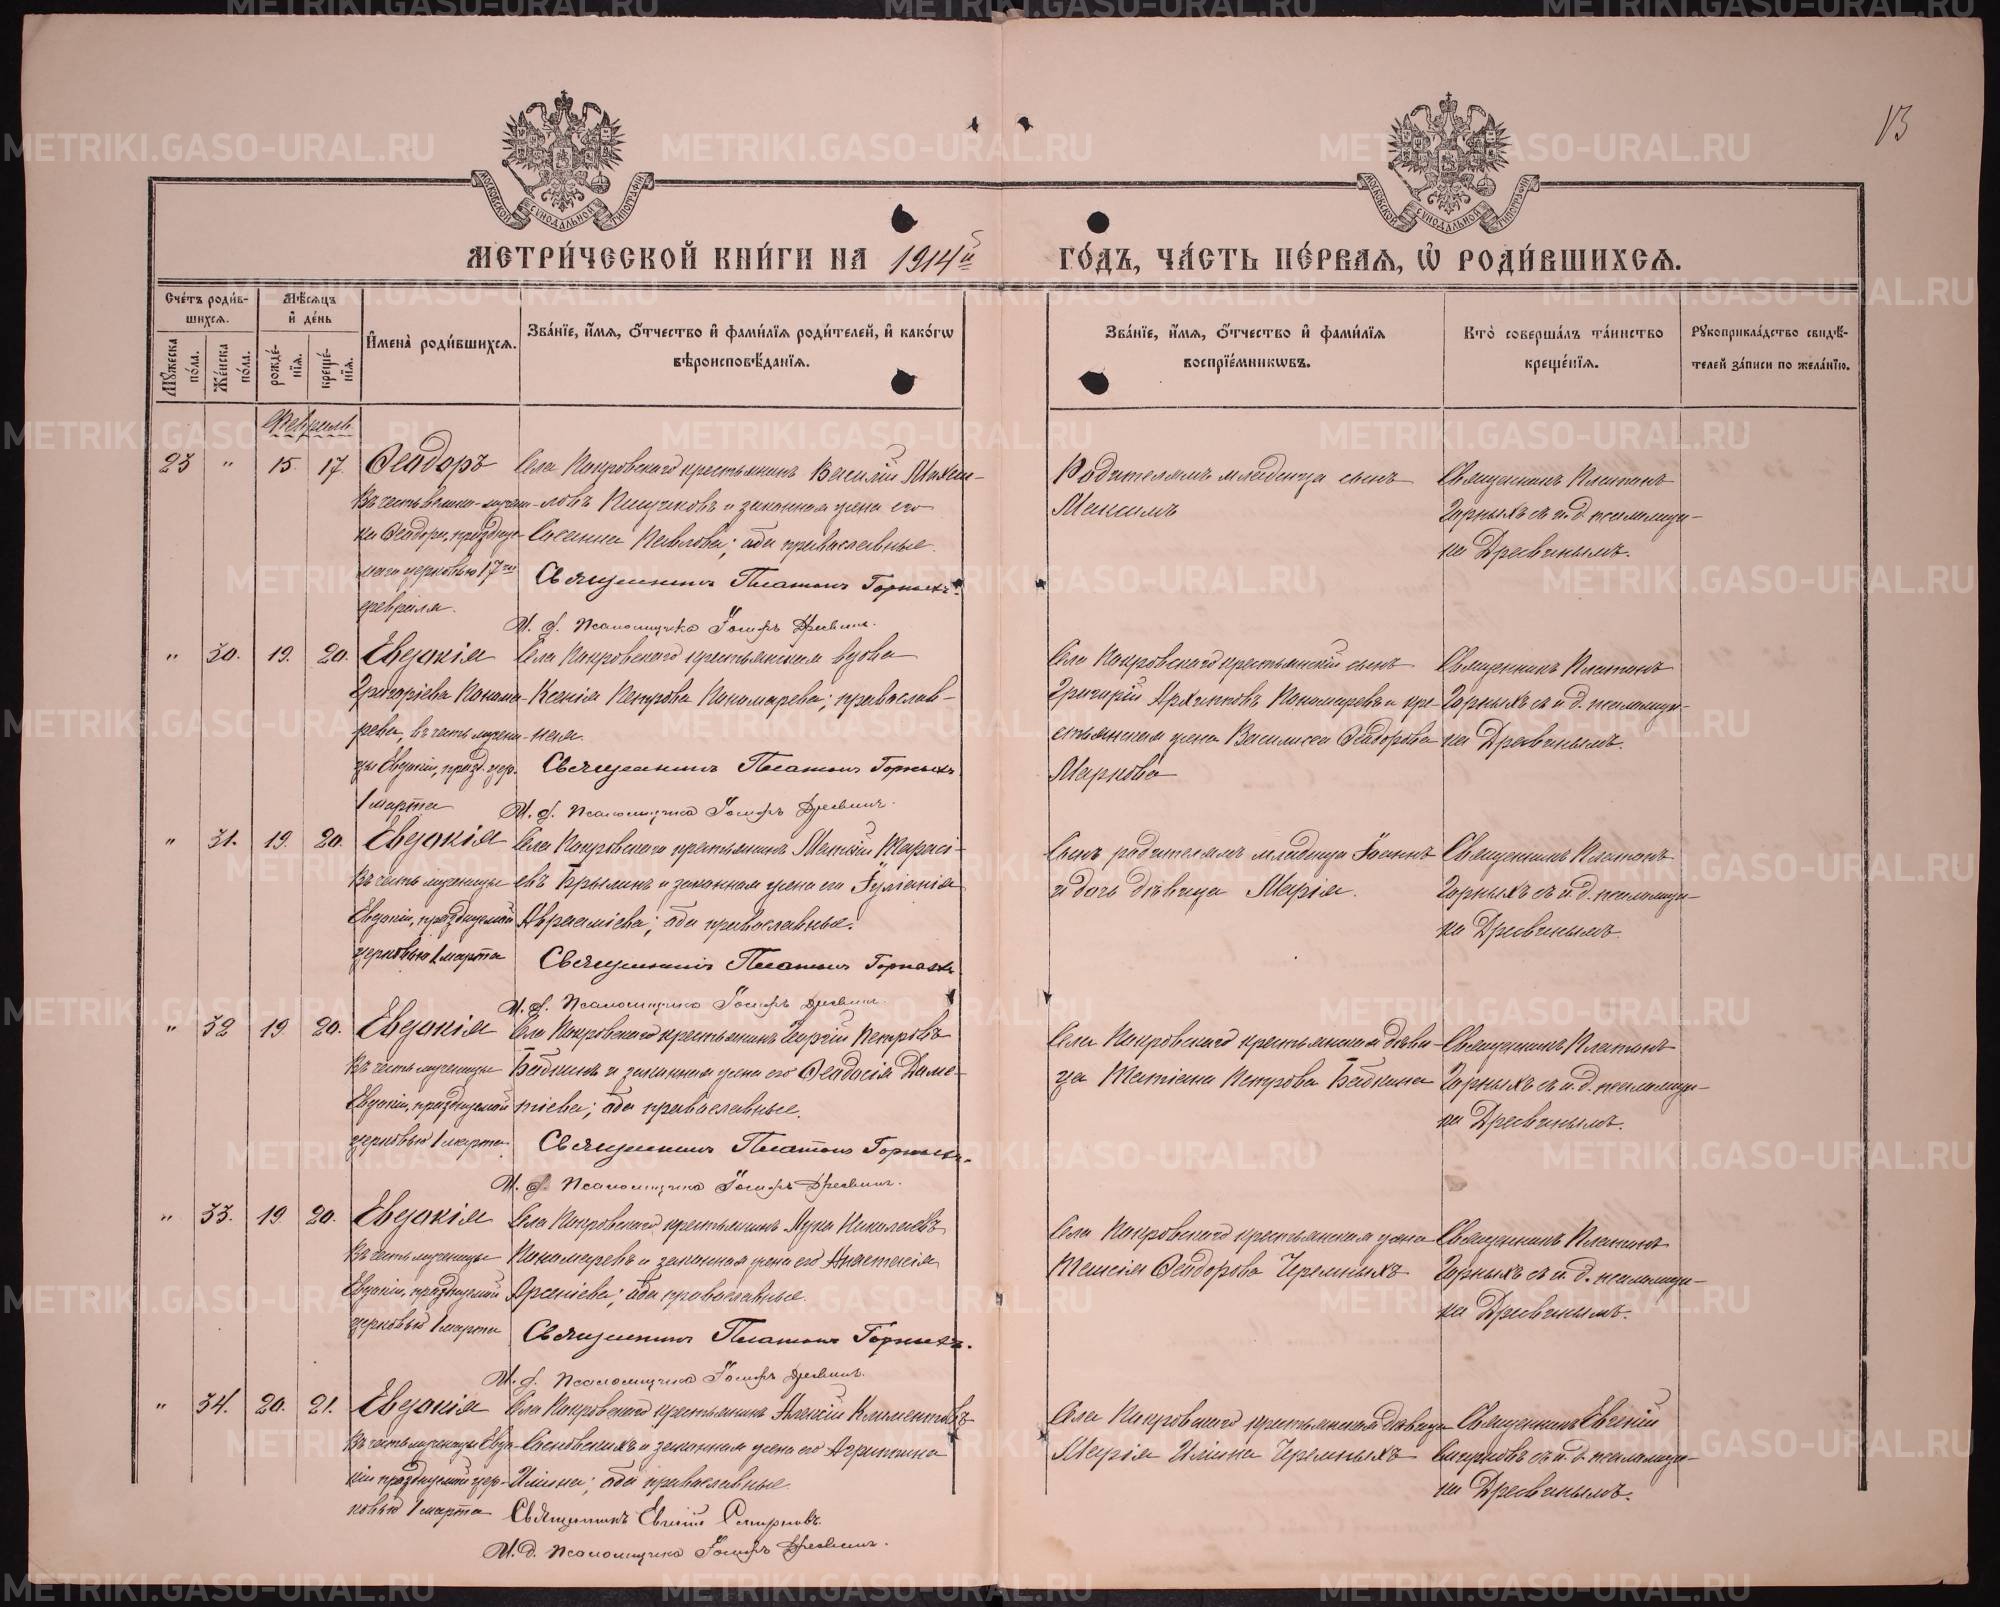 13
МЕТРИ́ЧЕСКОЙ КНИ́ГИ НА 1914й ГО́ДЪ, ЧА́СТЬ ПЕ́РВАЯ, Ѡ҆ РОДИ́ВШИХСЯ.
Сче́тъ роди́в-
шихся.
Мꙋ́жеска по́ла.
Же́нска по́ла.
Мѣ́сяцъ и҆ де́нь
рожде́-нїя.
креще́-нїя.
И҆мена̀ роди́вшихся.
Зва́нїе, и҆́мя, ѻ҆́тчество и҆ фами́лїя роди́телей, и҆ како́гѡ
вѣроисповѣ́данїя.
Зва́нїе, и҆́мя, ѻ҆́тчество и҆ фами́лїя
воспрїе́мникѡвъ.
Кто̀ соверша́лъ та́инство
креще́нїя.
Рꙋкоприкла́дство свидѣ́-
телей за́писи по жела́нїю.
Февраль
23 " 15. 17. Ѳеодоръ
Въ честь велико-мучени-
ка Ѳеодора, праздну-
маго церковью 17го
февраля.
Села Покровскаго крестьянинъ Василій Макси-
мовъ Пищиковъ и законная жена его
Сосанна Павлова; оба православные.
Священникъ Платонъ Горныхъ.
И. д. Псаломщика Іосифъ Дресвинъ.
Родителямъ младенца сынъ
Максимъ
Священникъ Платонъ
Горныхъ съ и. д. псаломщи-
ка Дресвинымъ.
" 30. 19. 20. Евдокія
Григоріева Понома-
рева, въ честь мучени-
цы Евдокіи, празд. цер.
1 марта
Села Покровскаго крестьянская вдова
Ксенія Петрова Пономарева; православ-
ная.
Священникъ Платонъ Горныхъ
И. д. Псаломщика Іосифъ Дресвинъ.
Села Покровскаго крестьянскій сынъ
Григорій Архиповъ Пономаревъ и кре-
стьянская жена Василиса Ѳеодорова
Маркова
Священникъ Платонъ
Горныхъ съ и. д. псаломщи-
ка Дресвинымъ.
" 31. 19. 20. Евдокія
Въ честь мученицы
Евдокіи, празднуемой
церковью 1 марта
Села Покровскаго крестьянинъ Матѳій Тараси-
евъ Брылинъ и законная жена его Іуліанія
Авраамієва; оба православные.
Священникъ Платонъ Горныхъ
И. д. Псаломщика Іосифъ Дресвинъ.
Сынъ родителямъ младенца Іоаннъ
и дочь дѣвица Марія.
Священникъ Платонъ
Горныхъ съ и. д. псаломщи-
ка Дресвинымъ.
" 32 19. 20. Евдокія
Въ честь мученицы
Евдокіи, празднуемой
церковью 1 марта.
Села Покровскаго крестьянинъ Георгій Петровъ
Бабкинъ и законная жена его Ѳеодосія Даме-
тіева; оба православные.
Священникъ Платонъ Горныхъ.
И. д. Псаломщика Іосифъ Дресвинъ.
Села Покровскаго крестьянская дѣви-
ца Татіана Петрова Бабкина
Священникъ Платонъ
Горныхъ съ и. д. псаломщи-
ка Дресвинымъ.
" 33. 19. 20. Евдокія
Въ честь мученицы
Евдокіи, празднуемой
церковью 1 марта
Села Покровскаго крестьянинъ Лука Николаевъ
Пономаревъ и законная жена его Анастасія
Арсеніева; оба православные.
Священникъ Платонъ Горныхъ.
И. д. Псаломщика Іосифъ Дресвинъ.
Села Покровскаго крестьянская жена
Таисія Ѳеодорова Черемныхъ
Священникъ Платонъ
Горныхъ съ и. д. псаломщи-
ка Дресвинымъ.
" 34. 20. 21. Евдокія
Въ честь мученицы Евдо-
кіи празднуемой цер-
ковью 1 марта
Села Покровскаго крестьянинъ Алексій Климентовъ
Сосновскихъ и законная жена его Агриппина
Ильина; оба православные.
Священникъ Евгеній Смирновъ.
И. д. Псаломщика Іосифъ Дресвинъ.
Села Покровскаго крестьянская дѣвица
Марія Ильина Черемныхъ
Священникъ Евгеній
Смирновъ съ и. д. псаломщи-
ка Дресвинымъ.